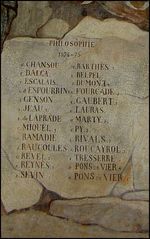 PHILOSOPHIE
1874-75
CHANSOU BARTHÈS
BALCA BELPEL
ESCALAIS DUMONT
d'ESPOURRIN FOURCADE
GENSON GAUBERT
JEAU LAURAS
de LAPRADE MARTY
MIQUEL PY
RAMADIE RIVALS
RAUCOULES ROUCAYROL
REVEL TRESSERRE
REYNES PONS VIER
SEVIN PONS VIER